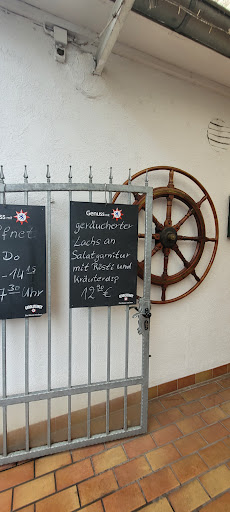 Genuss mit
öffnet
Do
- 14
7³⁰ Uhr
Genuss mit
geräucherter
Lachs an
Salatgarnitur
mit Rösti und
Kräuterdip
12⁹⁰ €